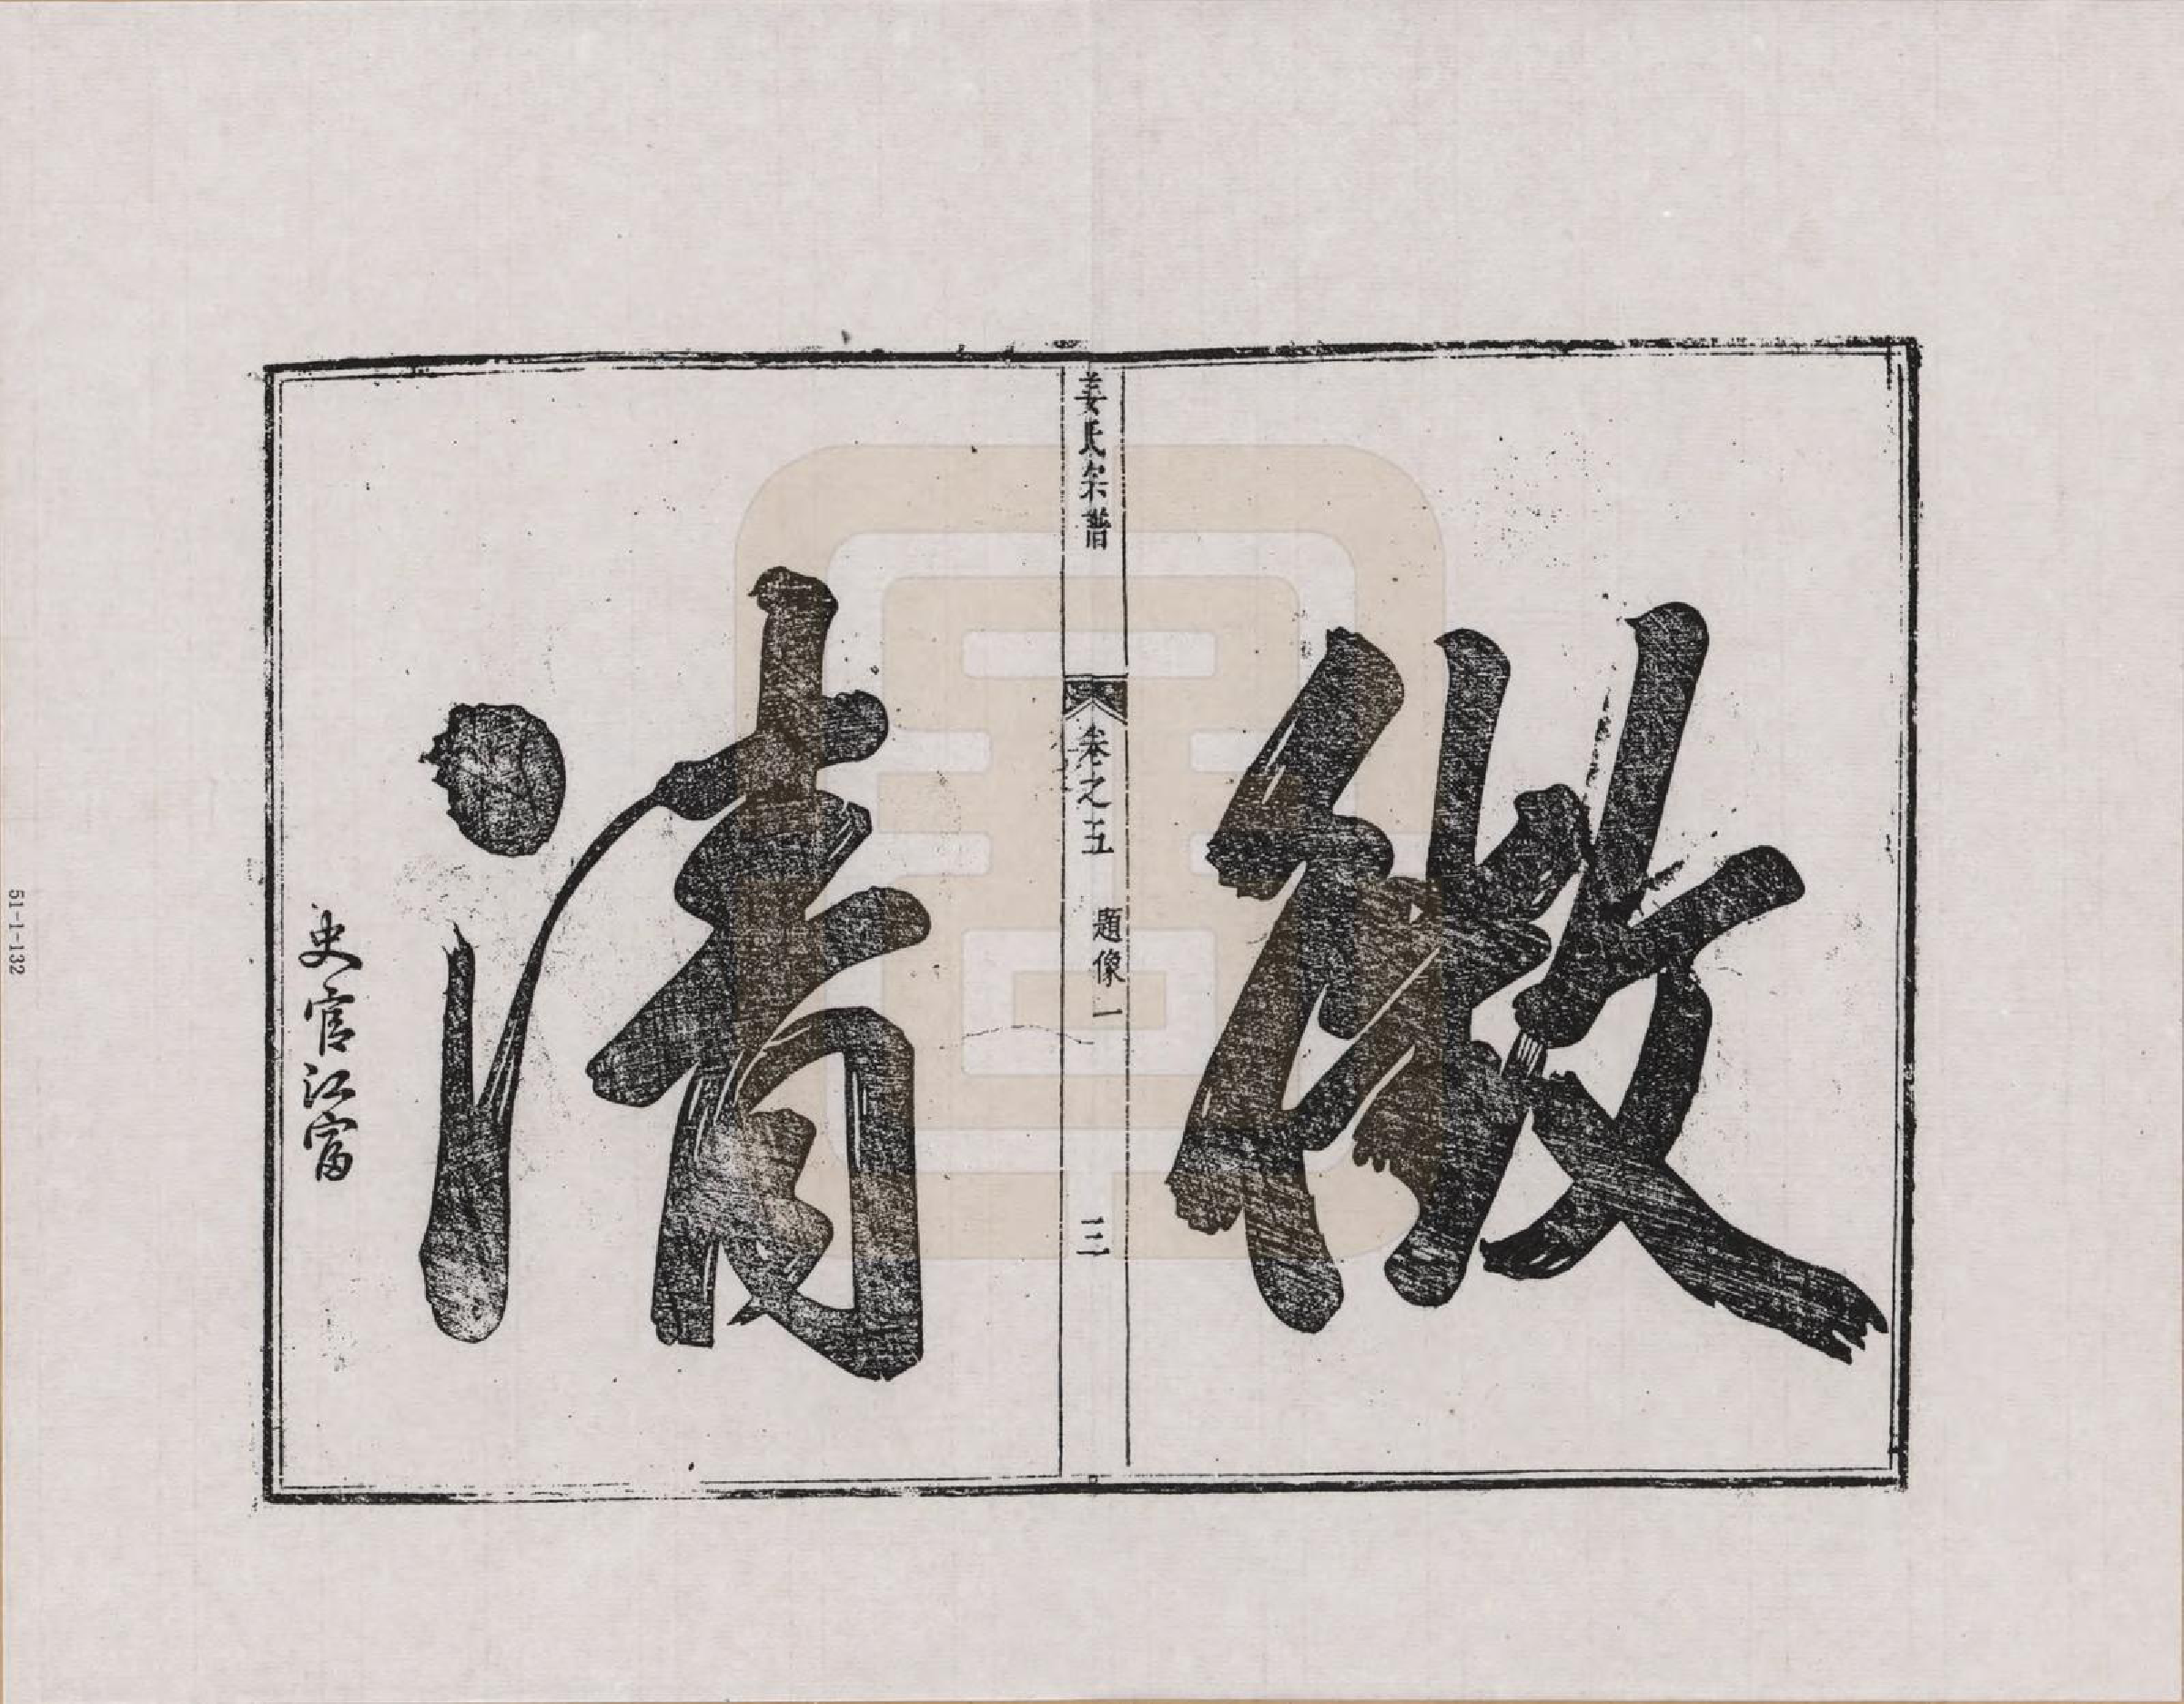 徽
姜氏宗譜
卷之五
題像一
三
清
史官江富
51-1-132